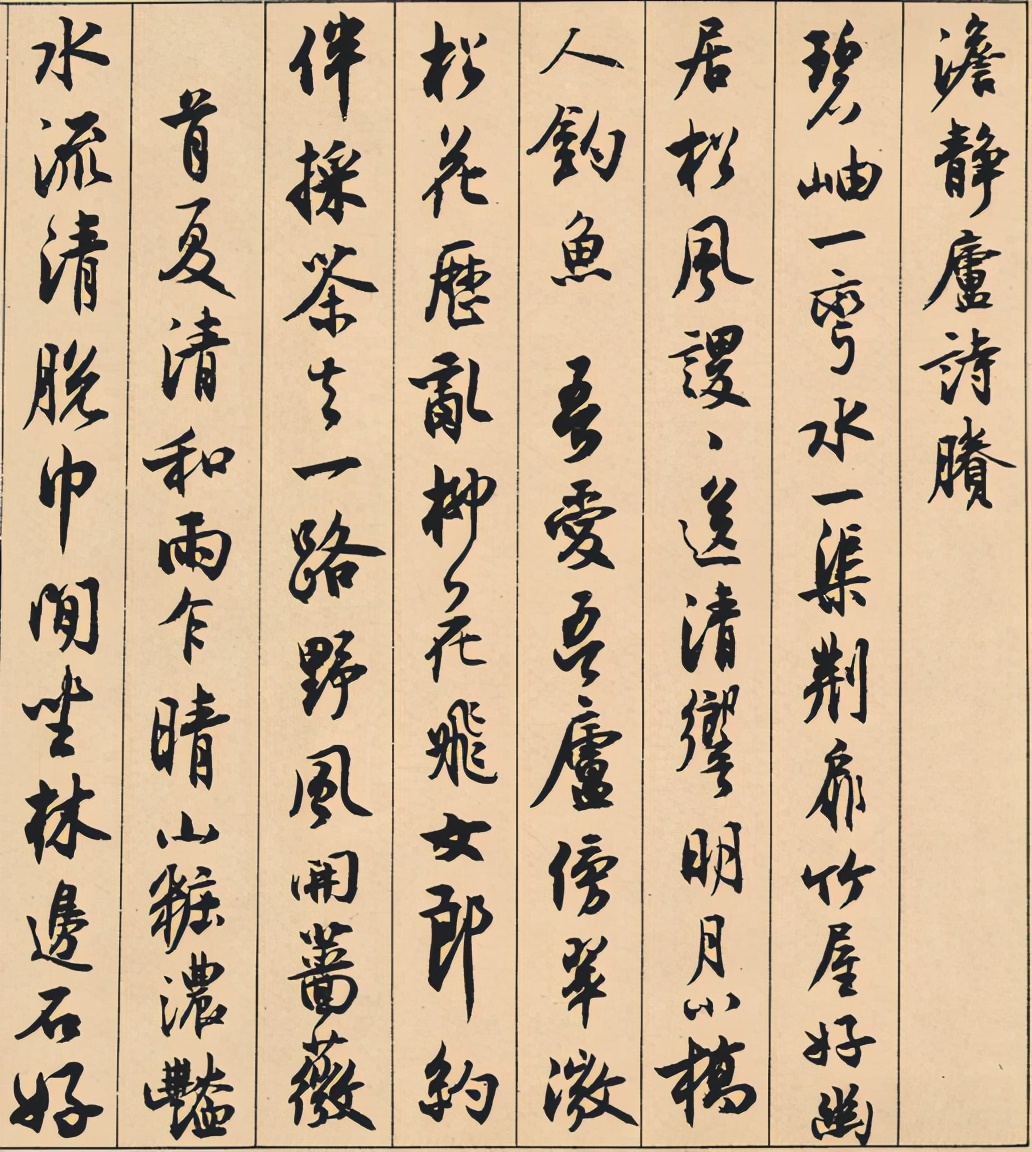 澹静廬詩賸
碧岫一彎水一渠荆扉竹屋好幽
居松風謖〻送清響明月小橋
人釣魚 吾愛吾廬傍翠微
松花歷亂柳花飛女郎約
伴採茶去一路野風開薔薇
首夏清和雨乍晴山糚濃豔
水流清脱巾閒坐林邊石好